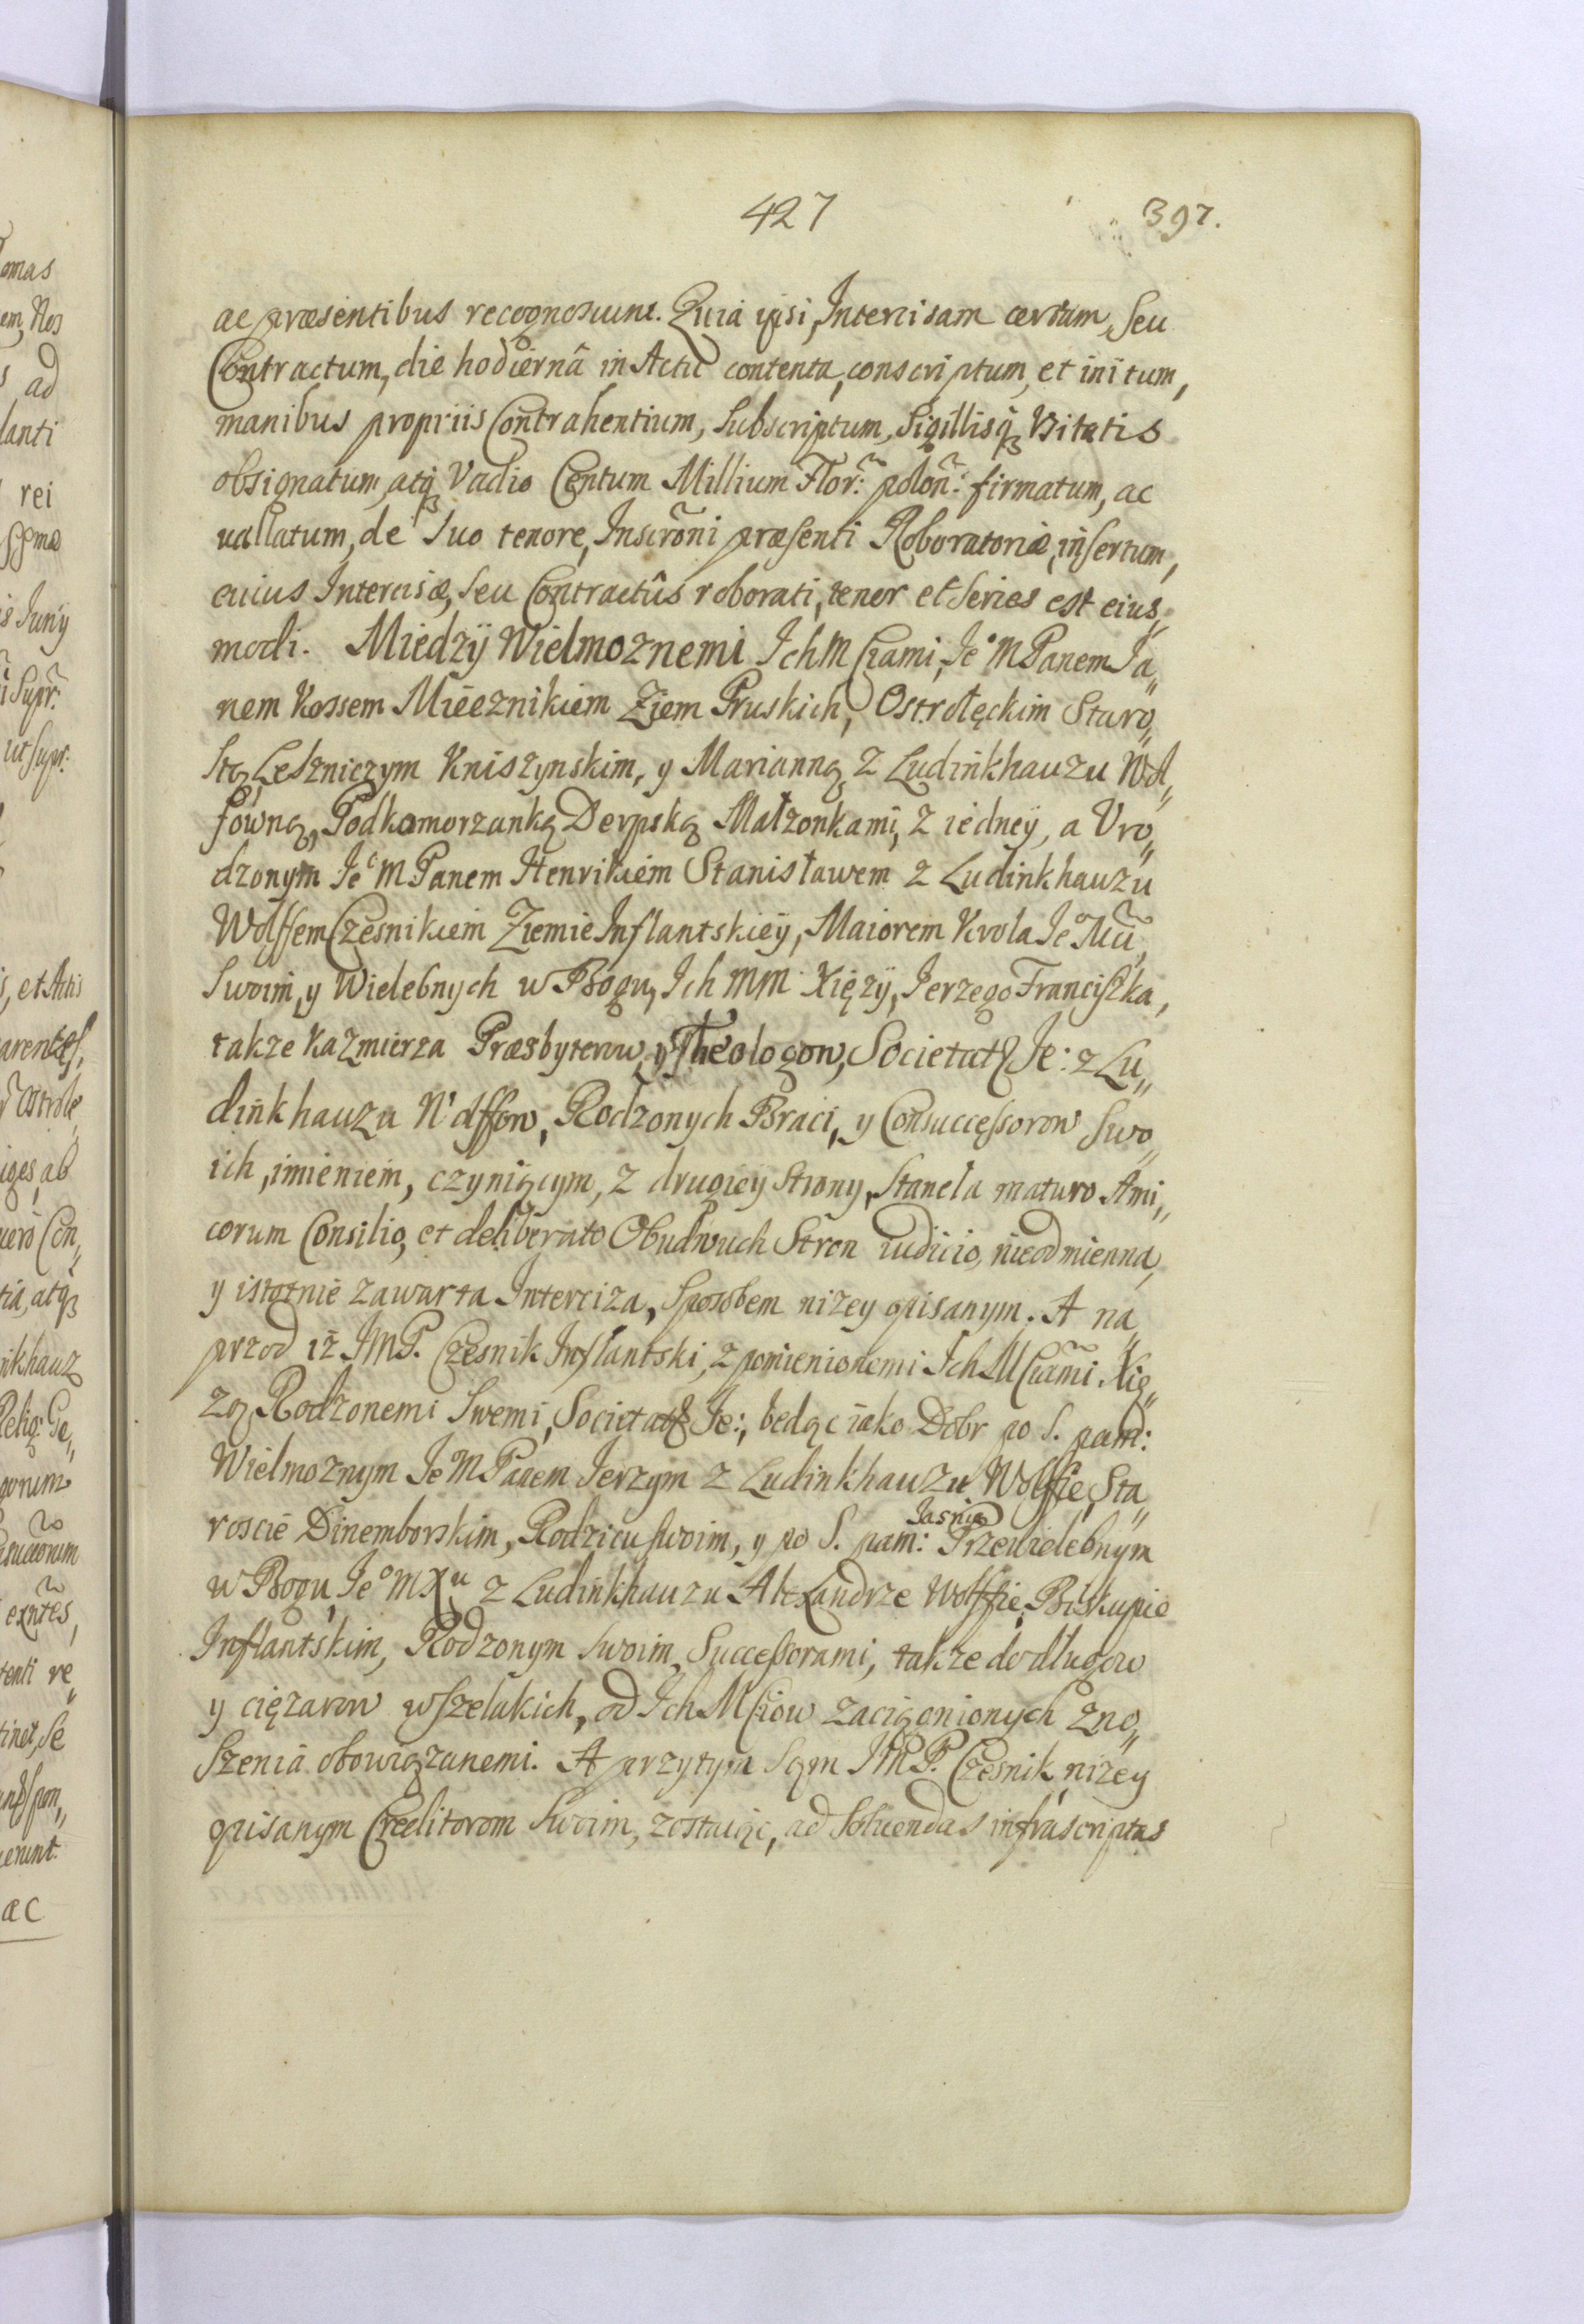 427 397.
ac præsentibus recognoscunt. Quia ipsi, Intercisam certam, seu
Contractum, die hodiernâ in Actu contenta, conscriptum, et initum,
manibus propriis Contrahentium, Subscriptum, Sigillisq, Usitatis
obsignatum, atq, Vadio Centum Millium Flor: polon: firmatum, ac
vallatum, de Suo tenore, Inscrõni præsenti Roboratoriæ, insertum,
cuius Intercisæ, seu Contractûs roborati, tenor et Series est eius„
modi. Miedzÿ Wielmoznemi Ich M Ciami, Je° M Panem Ja„
nem Kossem Miecznikiem Ziem Pruskich, Ostrołęckim Staro„
stą, Leszniczym Kniszynskim, y Marianną z Ludinkhauzu Wol„
fowną, Podkomorzanką Derpską Małzonkami, z iedneÿ, a Uro„
dzonym Je° M Panem Henrikiem Stanisławem z Ludinkhauzu
Wolffem Czesnikiem Ziemie Inflantskieÿ, Maiorem Krola Je° Mci,
Swoim, y Wielebnych w Bogu, Ich MM Xięzÿ, Jerzego Franciszka,
takze Kazmierza Præsbyterow, y Theologow, Societatis Je: z Lu„
dinkhauzu Wolffow, Rodzonych Braci, y Consuccessorow Swo„
ich, imieniem, czyniącym, z drugieÿ Strony, Stanela maturo Ami„
corum Consilio, et deliberato Obudwuch Stron iudicio, nieodmienna,
y istotnie zawarta Interciza, Sposobem nizey opisanym. A na„
przod iż JMP. Czesnik Inflantski, z pomienionemi Ich M Ciami Xię„
zą Rodzonemi Swemi, Societatis Je:, będąc iako Dobr po S. pam:
Wielmoznym Je M Panem Jerzym z Ludinkhauzu Wolffie, Sta„
roscie Dinemborskim, Rodzicu swoim, y po S. pam: Jasnie Przewielebnym
w Bogu, Je° M Xu z Ludinkhauzu Alexandrze Wolffie, Biskupie
Inflantskim, Rodzonym Swoim, Successorami, takze do dlugow
y cięzarow wszelakich, od Ich M Ciow zaciągnionych zno„
szenia obowiązanemi. A przytym Sąm JMP. Czesnik, nizey
opisanym Creditorom Swoim, zostaiąc, ad Soluendas infrascriptas